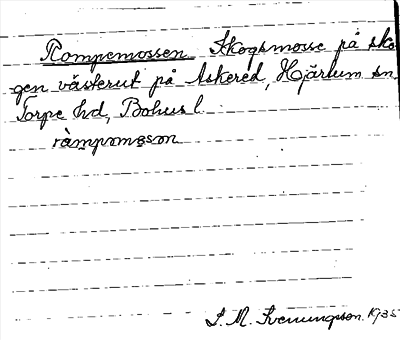 Rompemossen Skogsmosse på sko-
gen västerut på Askered, Hjärtum sn.
Torpe hd, Bohus l.
ràmpomǝsɷn
S. M. Svenungson. 1935